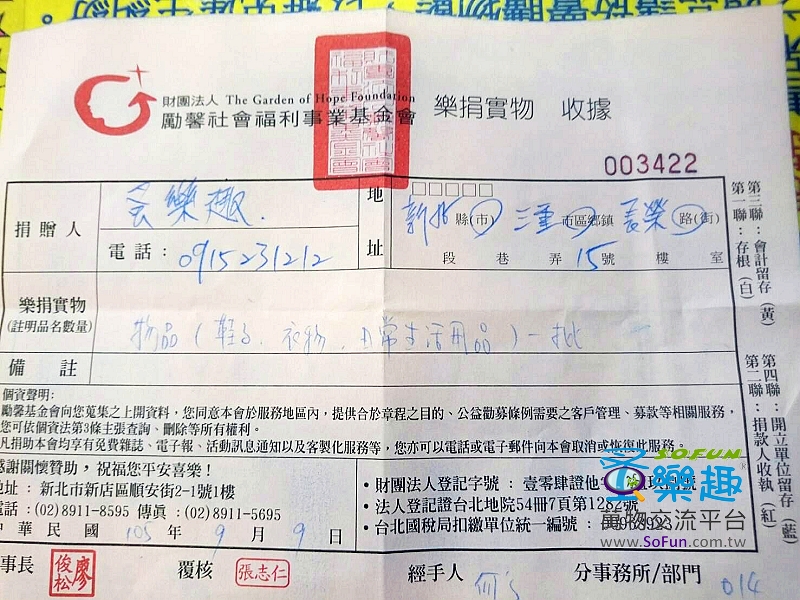 財團法人 The Garden of Hope Foundation
勵馨社會福利事業基金會 樂捐實物 收據
003422
捐贈人
樂趣
電話：0915231212
地址
新北 縣(市) 三重 市區鄉鎮 長榮 路(街)
段 巷 弄 15號 樓 室
樂捐實物
(註明品名數量)
物品(鞋子、衣物、日常生活用品)一批
備註
個資聲明:
勵馨基金會向您蒐集之上開資料，您同意本會於服務地區內，提供合於章程之目的、公益勸募條例需要之客戶管理、募款等相關服務，
您可依個資法第3條主張查詢、刪除等所有權利。
凡捐助本會均享有免費雜誌、電子報、活動訊息通知以及客製化服務等，您亦可以電話或電子郵件向本會取消或恢復此服務。
感謝關懷贊助，祝福您平安喜樂！
地址：新北市新店區順安街2-1號1樓
電話:(02)8911-8595 傳眞:(02)8911-5695
中華民國 105 年 9 月 9 日
・財團法人登記字號：壹零肆證他字
・法人登記證台北地院54冊7頁第1282號
・台北國稅局扣繳單位統一編號：
事長 廖俊松 覆核 張志仁 經手人 分事務所/部門 014
第一聯：存根（白）
第三聯：會計留存（黃）
第二聯：捐款人收執（紅）
第四聯：開立單位留存（藍）
SOFUN
樂趣
萬物交流平台
www.SoFun.com.tw